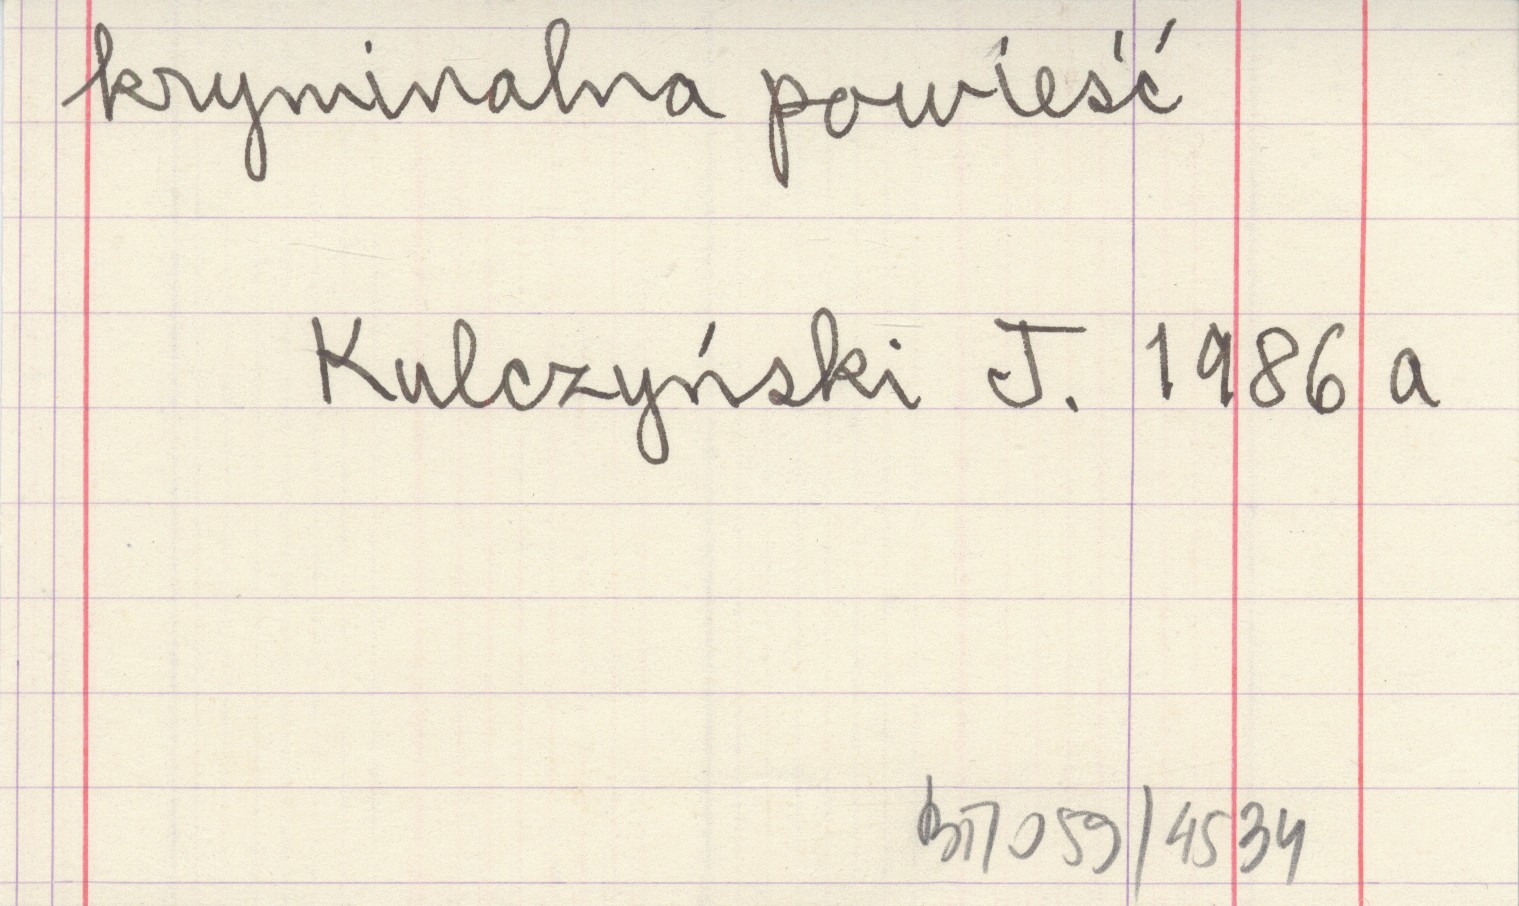 kryminalna powieść
Kulczyński J. 1986 a
059/4534